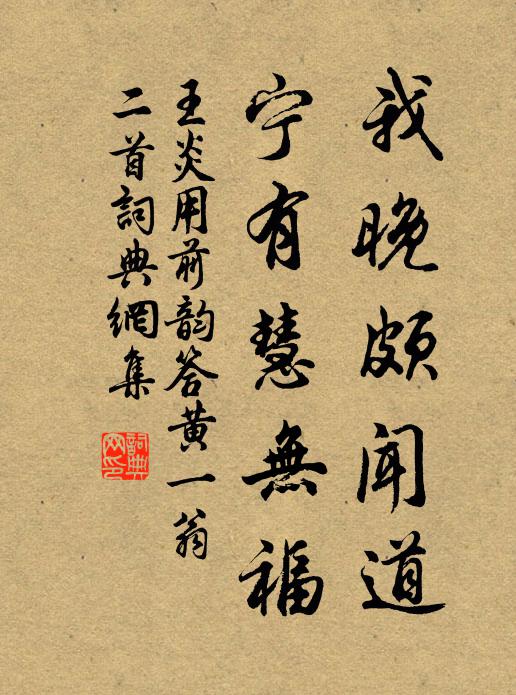 我晚頗聞道
宁有慧無福
王炎用前韵答黄一翁
二首詞典網集
詞典
网印